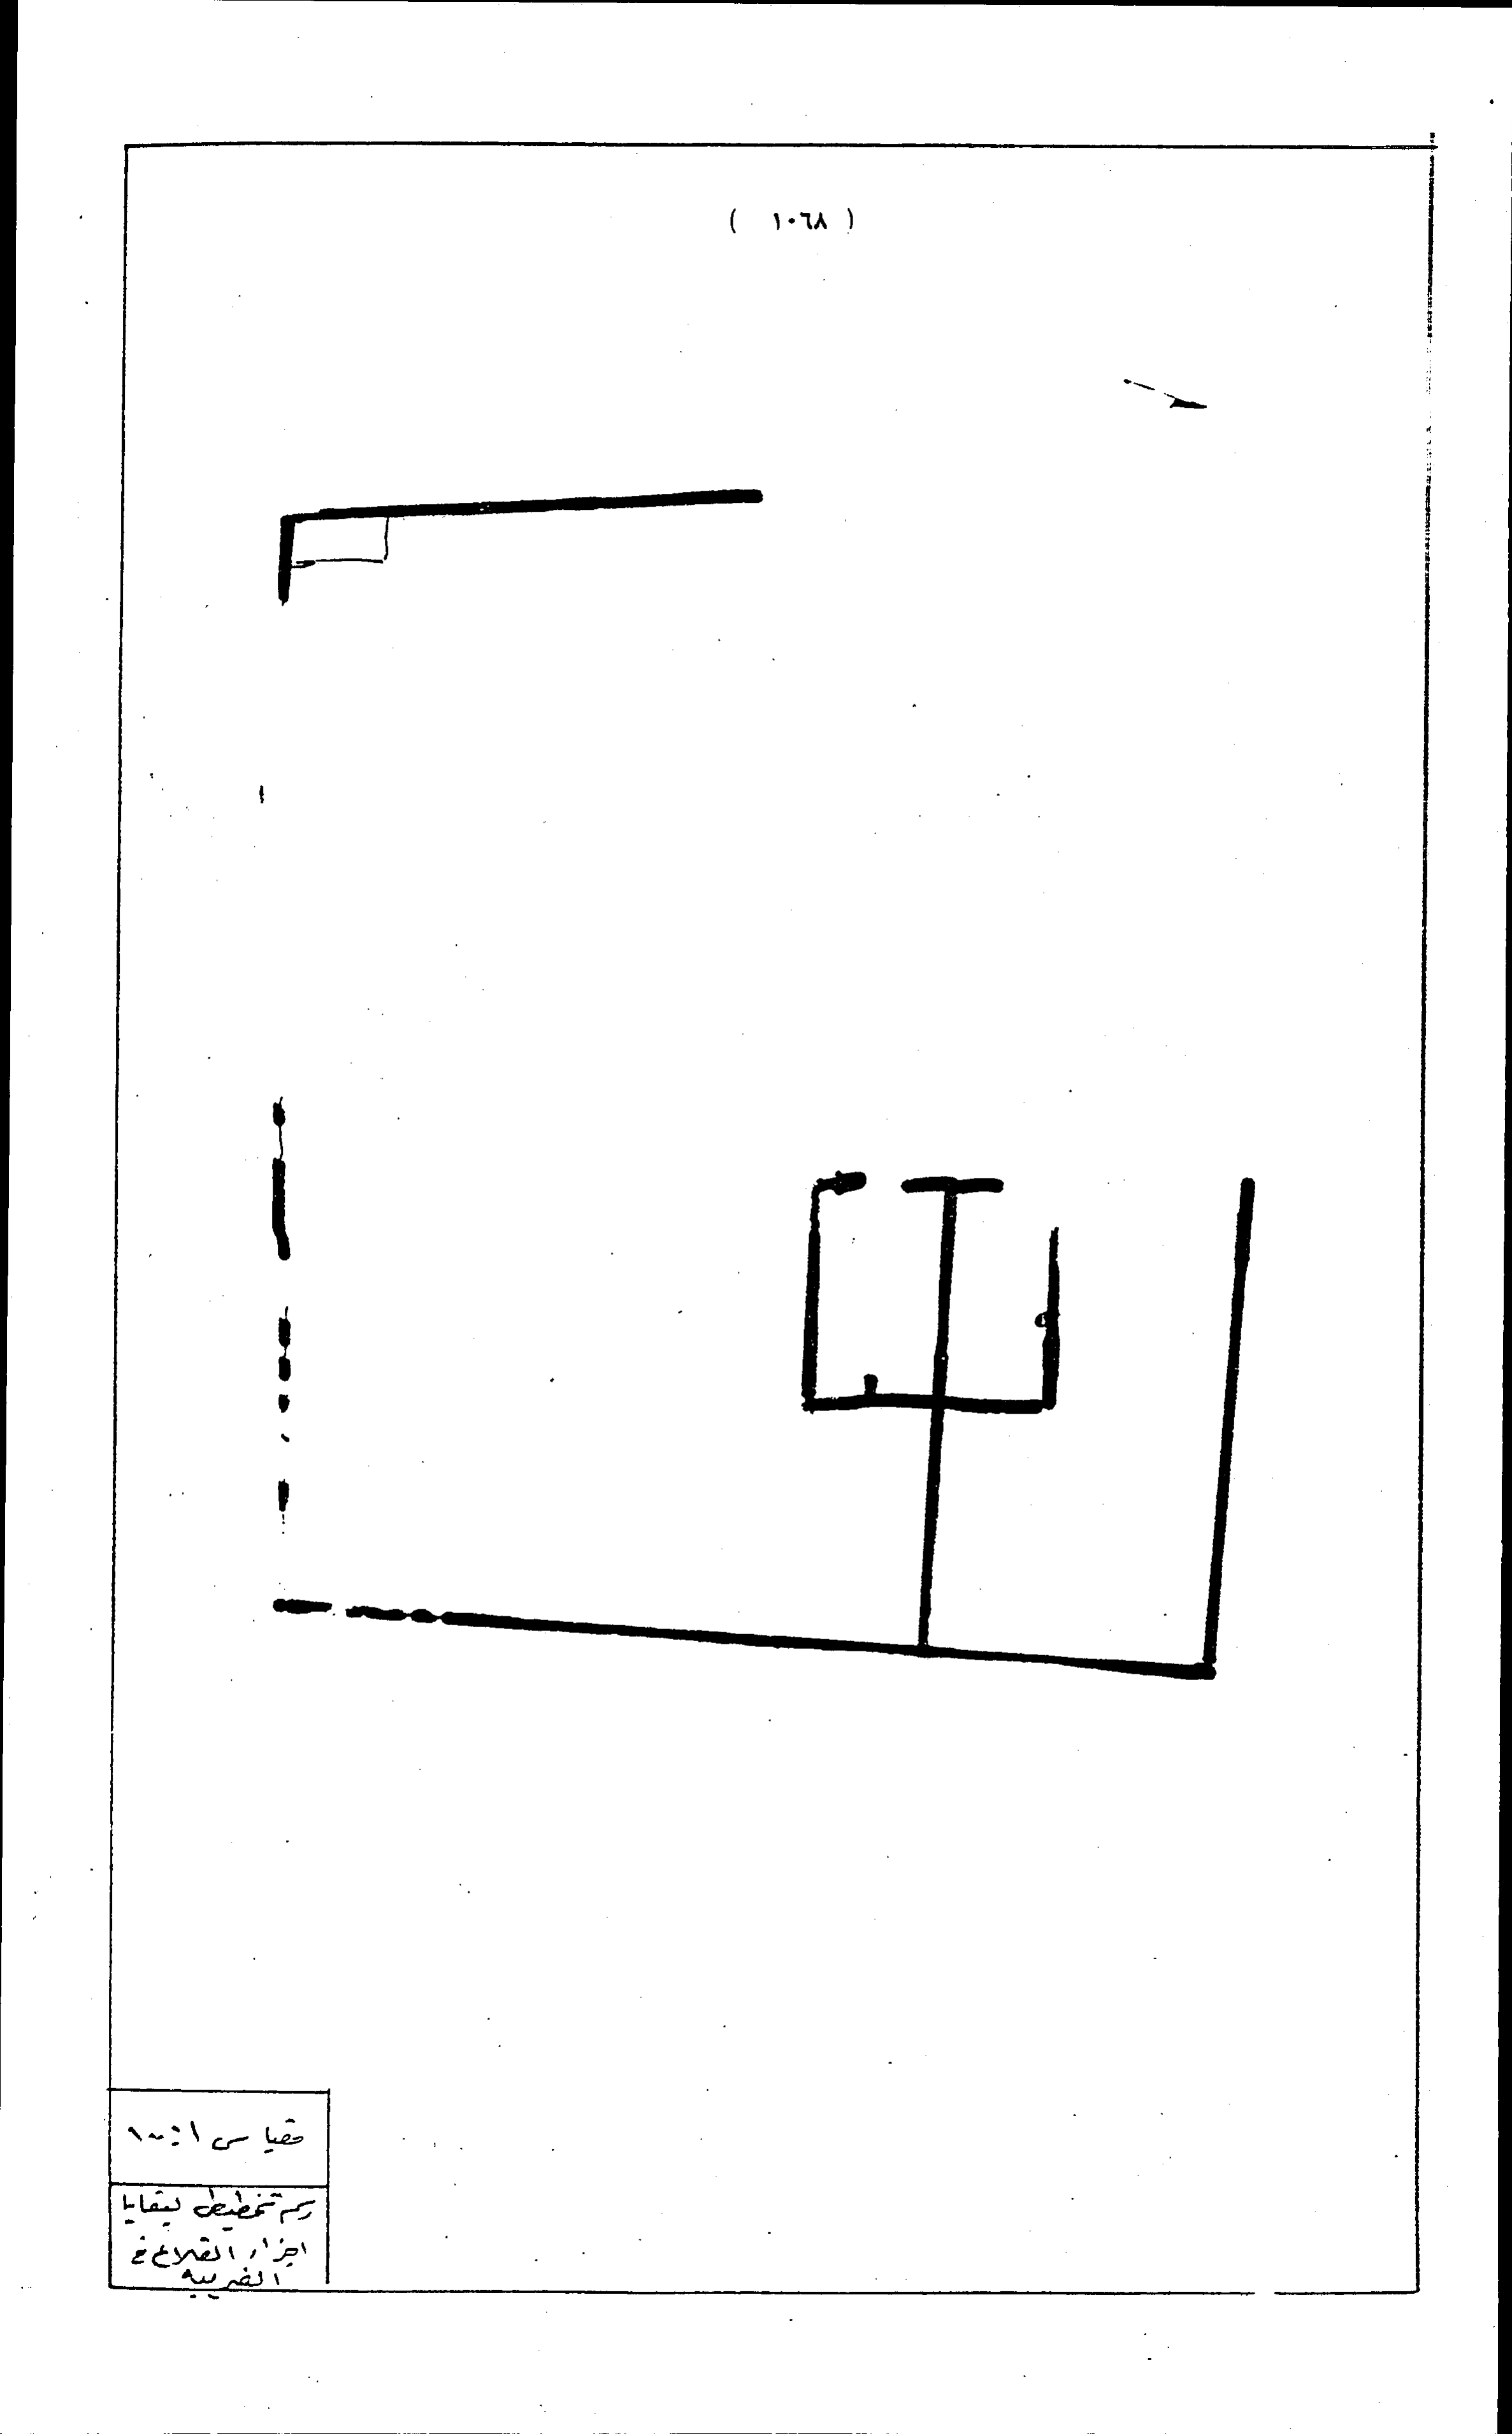 ( ١٠٦٨ )
مقياس ١:١٠٠
رسم تخطيطي لبقايا
اجزاء القلاع في
الضريبة